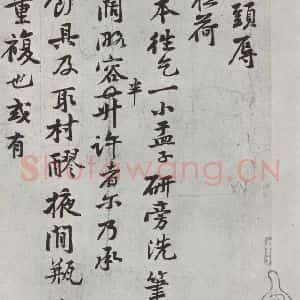 頭辱
荷
本往乞一小盂子研旁洗筆
闊略容半升許者尔乃承
具及取村醪掖間瓶
重複也或有
Shufawang.CN